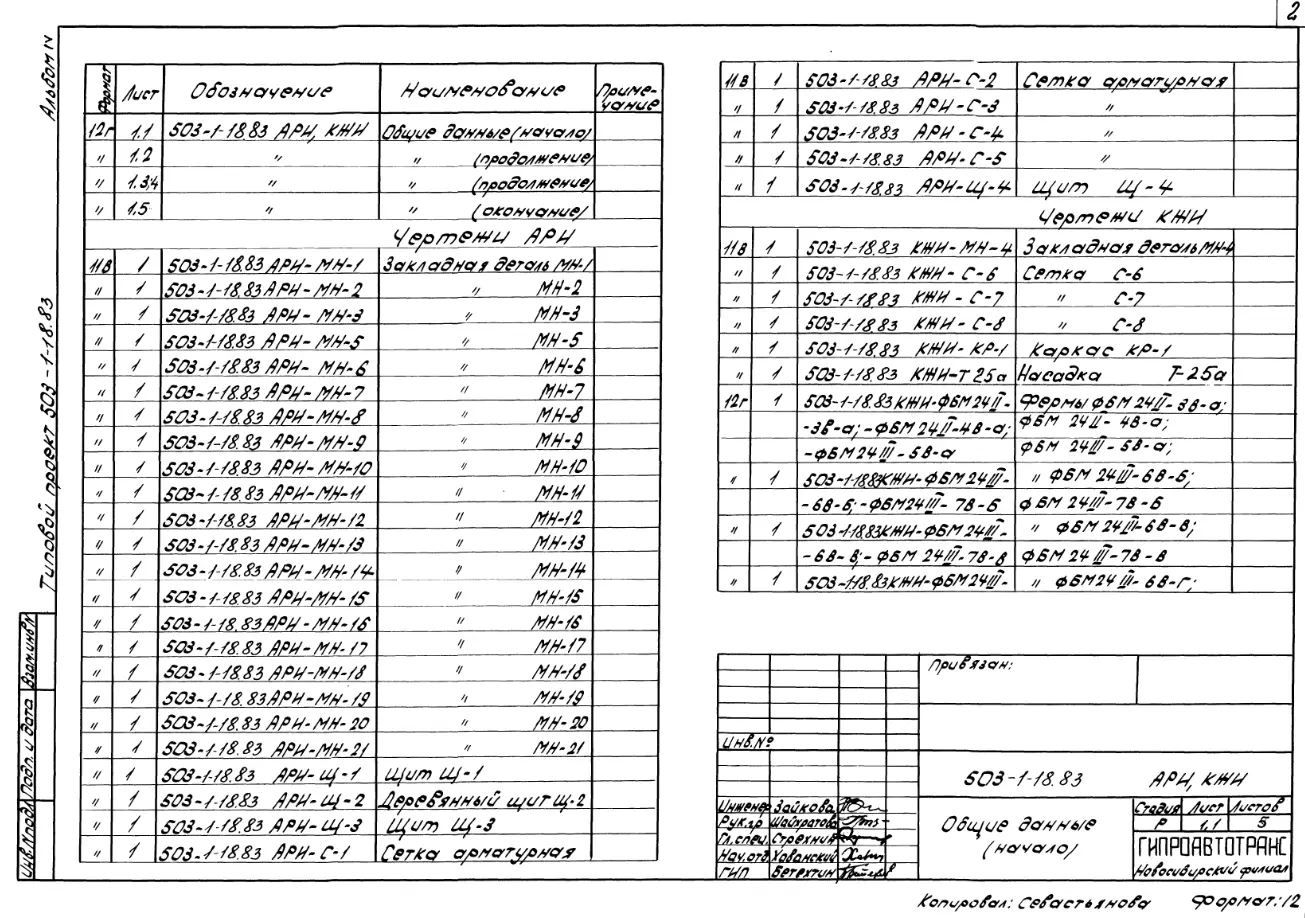 2
Альбом IV
Типовой проект 503-1-18.83
Формат Лист Обозначение Наименование Приме-
чание
12г 1.1 503-1-18.83 АРИ, КЖИ Общие данные (начало)
" 1.2 " " (продолжение)
" 1.3;4 " " (продолжение)
" 1.5 " " (окончание)
Чертежи АРИ
11в 1 503-1-18.83 АРИ-МН-1 Закладная деталь МН-1
" 1 503-1-18.83 АРИ-МН-2 " МН-2
" 1 503-1-18.83 АРИ-МН-3 " МН-3
" 1 503-1-18.83 АРИ-МН-5 " МН-5
" 1 503-1-18.83 АРИ-МН-6 " МН-6
" 1 503-1-18.83 АРИ-МН-7 " МН-7
" 1 503-1-18.83 АРИ-МН-8 " МН-8
" 1 503-1-18.83 АРИ-МН-9 " МН-9
" 1 503-1-18.83 АРИ-МН-10 " МН-10
" 1 503-1-18.83 АРИ-МН-11 " МН-11
" 1 503-1-18.83 АРИ-МН-12 " МН-12
" 1 503-1-18.83 АРИ-МН-13 " МН-13
" 1 503-1-18.83 АРИ-МН-14 " МН-14
" 1 503-1-18.83 АРИ-МН-15 " МН-15
" 1 503-1-18.83 АРИ-МН-16 " МН-16
" 1 503-1-18.83 АРИ-МН-17 " МН-17
" 1 503-1-18.83 АРИ-МН-18 " МН-18
" 1 503-1-18.83 АРИ-МН-19 " МН-19
" 1 503-1-18.83 АРИ-МН-20 " МН-20
" 1 503-1-18.83 АРИ-МН-21 " МН-21
" 1 503-1-18.83 АРИ-Щ-1 Щит Щ-1
" 1 503-1-18.83 АРИ-Щ-2 Деревянный щит Щ-2
" 1 503-1-18.83 АРИ-Щ-3 Щит Щ-3
" 1 503-1-18.83 АРИ-С-1 Сетка арматурная
11в 1 503-1-18.83 АРИ-С-2 Сетка арматурная
" 1 503-1-18.83 АРИ-С-3 "
" 1 503-1-18.83 АРИ-С-4 "
" 1 503-1-18.83 АРИ-С-5 "
" 1 503-1-18.83 АРИ-Щ-4 Щит Щ-4
Чертежи КЖИ
11в 1 503-1-18.83 КЖИ-МН-4 Закладная деталь МН-4
" 1 503-1-18.83 КЖИ-С-6 Сетка С-6
" 1 503-1-18.83 КЖИ-С-7 " С-7
" 1 503-1-18.83 КЖИ-С-8 " С-8
" 1 503-1-18.83 КЖИ-КР-1 Каркас КР-1
" 1 503-1-18.83 КЖИ-Т25а Насадка Т-25а
12г 1 503-1-18.83 КЖИ-ФБМ24II- Фермы ФБМ 24II-3В-а;
-3В-а;-ФБМ24II-4В-а; ФБМ 24II-4В-а;
-ФБМ24III-5В-а ФБМ 24III-5В-а;
" 1 503-1-18.83 КЖИ-ФБМ24III- " ФБМ 24III-6В-Б;
-6В-Б;-ФБМ24III-7В-Б ФБМ 24III-7В-Б
" 1 503-1-18.83 КЖИ-ФБМ24III- " ФБМ 24III-6В-в;
-6В-в;-ФБМ 24III-7В-в ФБМ 24III-7В-в
" 1 503-1-18.83 КЖИ-ФБМ24III- " ФБМ24III-6В-г;
Привязан:
Инв.№
503-1-18.83 АРИ, КЖИ
Инженер Зайкова
Рук.гр Шайхратова
Гл.спец. Стрехнин
Нач.отд Хованский
ГИП Бетехтин
Общие данные
(начало)
Стадия Лист Листов
Р 1.1 5
ГИПРОАВТОТРАНС
Новосибирский филиал
Инв.№подл Подп. и дата Взам.инв.№
Копировал: Севастьянова Формат: 12